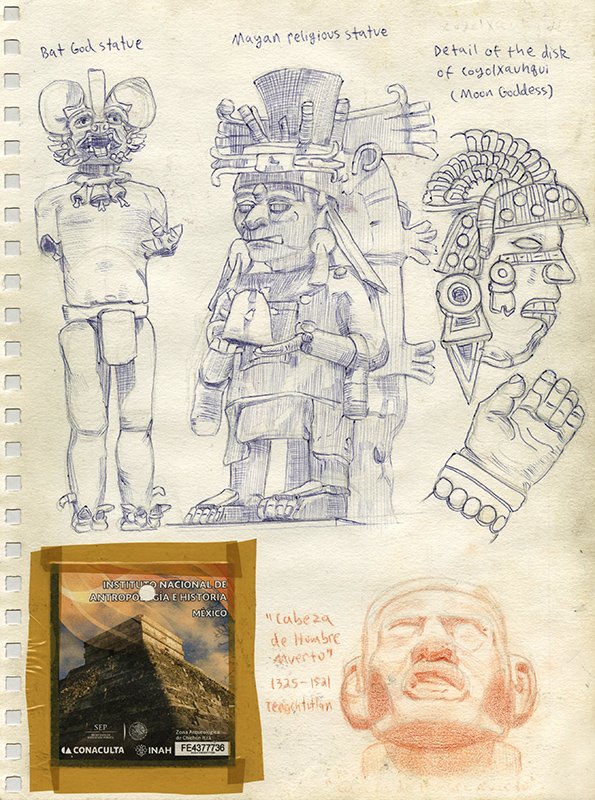 Bat God statue
Mayan religious statue
Detail of the disk
of Coyolxauhqui
(Moon Goddess)
INSTITUTO NACIONAL DE
ANTROPOLOGÍA E HISTORIA
MÉXICO
SEP
Zona Arqueológica
de Chichén Itzá
CONACULTA
INAH
FE4377736
"Cabeza
de Hombre
Muerto"
1325-1521
Tenochtitlan